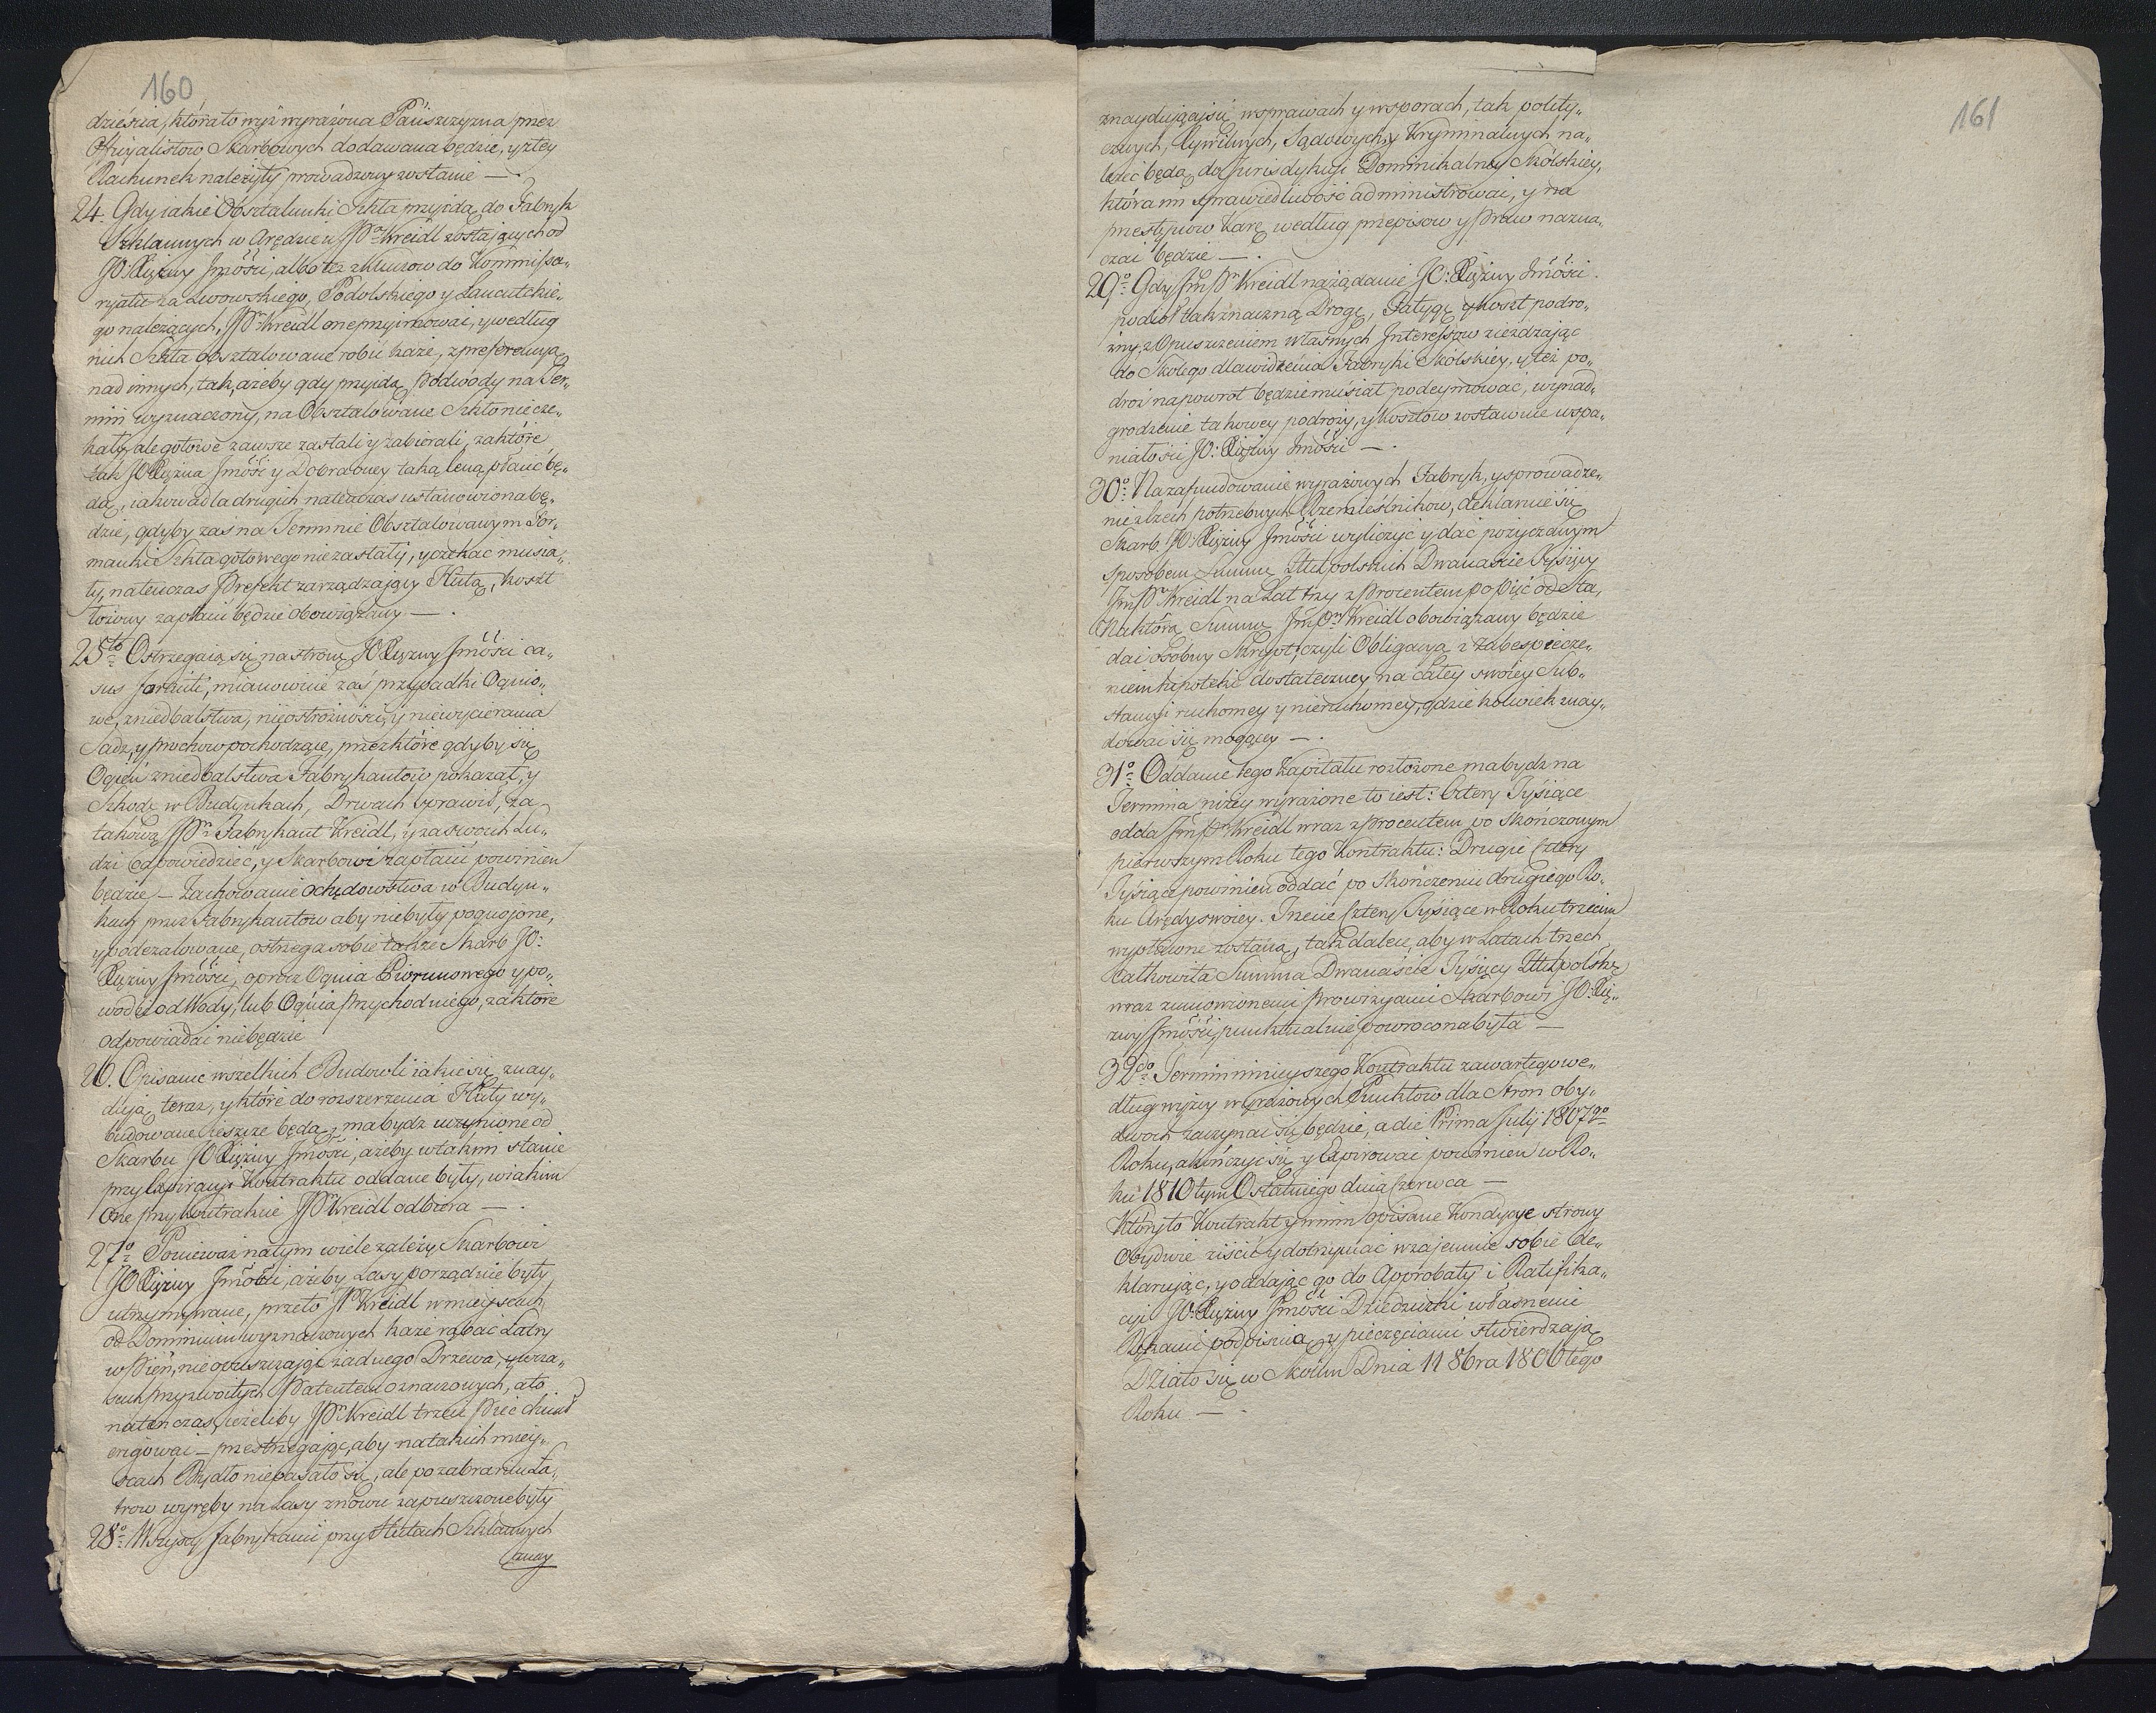 160
dzieścia, którato wyż wyrażona Pańszczyzna przez
Officyalistow Skarbowych dodawana będzie, y z tey
Rachunek należyty prowadzony zostanie —.
24. Gdy iakie Obsztalunki Szkła przyidą do Fabryk
Szklannych w Arędzie u JPn Kreidl zostaiących od
JO: Xiężny Jmości, albo też z Kluczow do Kommissa„
ryatu za Lwowskiego, Podolskiego y Łancutckie„
go należących, JPn Kreidl one przyimować, y według
nich Szkła obsztalowane robić każe, z preferencyą
nad innych, tak, ażeby gdy przyidą Podwody na Ter„
min wyznaczony, na Obsztalowane Szkło nie cze„
kały, ale gotowe zawsze zastali y zabierali, za które
tak JO Xiężna Jmość y Dobra oney taką Cenę płacić bę„
dą, iakowa dla drugich natenczas ustanowiona bę„
dzie, gdyby zaś na Terminie Obsztalowanym For„
manki Szkła gotowego nie zastały, y czekać musia„
ły, natenczas Prefekt zarządzaiący Hutą, koszt
łożony zapłacić będzie obowiązany —.
25to Ostrzegaią się na stronę JO Xiężny Jmości ca„
sus fortuiti, mianowicie zaś przypadki Ognio„
we, z niedbalstwa, nieostrożności, y niewycierania
Sadz, y prochow pochodzące, przez które gdyby się
Ogień z niedbalstwa Fabrykantow pokazał, y
Szkodę w Budynkach, Drwach sprawił, za
takową JPn Fabrykant Kreidl, y za swoich Lu„
dzi odpowiedzieć, y Skarbowi zapłacić powinien
będzie — Zachowanie ochędowstwa w Budyn„
kach przez Fabrykantow aby nie były pognojone,
y podezalowane, ostrzega sobie także Skarb JO:
Xiężny Jmości, oprocz Ognia Piorunowego y po„
wodzi od Wody, lub Ognia Przychodniego, za które
odpowiadać nie będzie
26. Opisanie wszelkich Budowli iakie się znay„
duią teraz, y które do rozszerzenia Huty wy„
budowane ieszcze będą, ma bydz uczynione od
Skarbu JO Xiężny Jmości, ażeby w takim stanie
przy Expiracyi Kontraktu oddane były, w iakim
One przy Kontrakcie JPn Kreidl odbiera —.
27o Ponieważ na tym wiele zależy Skarbowi
JO Xiężny Jmości, ażeby Lasy porządnie były
utrzymywane, przeto JPn Kreidl w mieyscach
od Dominium wyznaczonych każe rąbać Łatry
w Pień, nie opuszczając żadnego Drzewa, y w cza„
sach przyzwoitych Patentem oznaczonych, a to
natenczas, ieżeliby JPn Kreidl trzeci Piec chciał
erigować — przestrzegając, aby na takich miey„
scach Bydło nie pasało się, ale po zabraniu Ła„
trow wyręby na Lasy znowu zapuszczone były
28o Wszyscy fabrykanci przy Hutach Szklannych
znay
161
znayduiący się w sprawach y w sporach, tak polity„
cznych, Cywilnych, Sądowych, y Kryminalnych na„
leżeć będą do Jurisdykcyi Dominikalney Skolskiey,
która im sprawiedliwość administrować, y na
przestępcow Karę według przepisow y Praw nazna„
czać będzie —.
29o Gdy Jm Pn Kreidl na żądanie JO: Xiężny Jmości
podiął tak znaczną Drogę, Fatygę y Koszt podro„
żny, z Opuszczeniem własnych Interessow zieżdzając
do Skolego dla widzenia Fabryki Skolskiey, y też po„
droż na powrot będzie musiał podeymować, wynad„
grodzenie takowey podroży, y Kosztow zostawuie wspa„
niałości JO: Xiężny Jmości —.
30o Na zafundowanie wyrażonych Fabryk, y sprowadze„
nie z Czech potrzebnych Rzemieślnikow, deklaruie się
Skarb JO: Xiężny Jmości wyliczyć y dać pożyczalnym
sposobem Summę Złtch polskich Dwanaście Tysięcy
Jm Pn Kreidl na Lat trzy z Procentem po Pięć od Sta,
Na którą Summę Jm Pn Kreidl obowiązany będzie
dać osobny Skrypt, czyli Obligacyą z Zabespiecze„
niem hipoteki dostateczney na całey swoiey Sub„
stancyi ruchomey y nieruchomey, gdzie kolwiek znay„
dować się mogącey —.
31o Oddanie tego Kapitału rozłożone ma bydz na
Termina niżey wyrażone to iest: Cztery Tysiące
odda Jm Pn Kreidl wraz z Procentem po skończonym
pierwszym Roku tego Kontraktu: Drugie Cztery
Tysiące powinien oddać po skończeniu drugiego Ro„
ku Arędy swoiey. Trzecie Cztery Tysiące w Roku trzecim
wypłacone zostaną, tak dalece, aby w Latach trzech
Całkowita Summa Dwanaście Tysięcy Złtch polskich
wraz z umowionemi Prowizyami Skarbowi JO: Xię„
żny Jmości punktualnie powrocona była —
32do Termin ninieyszego Kontraktu zawartego we„
dług wyżey wyrażonych Punktow dla Stron oby„
dwoch zaczynać się będzie, a die Prima Julij 1807go
Roku, a kończyć się y Expirować powinien w Ro„
ku 1810tym Ostatniego dnia Czerwca —
Któryto Kontrakt y w nim opisane Kondycye strony
Obydwie ziścić y dotrzymać wzajemnie sobie de„
klaruiąc, y oddając go do Approbaty i Ratifika„
cyi JO: Xiężny Jmości Dziedziczki własnemi
Rękami podpisuią y pieczęciami stwierdzaią
Działo się w Skolim Dnia 11 8bra 1806tego
Roku —.